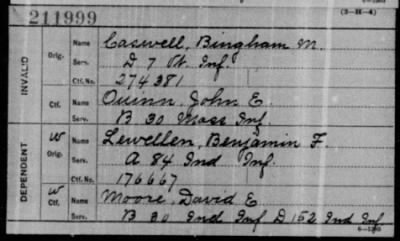 (3-H-4)
211999
INVALID
Orig. Name Caswell, Bingham M.
Serv. D 7 Vt. Inf.
Ctf. No. 274381
Ctf. Name Quinn, John E.
Serv. B 30 Mass Inf.
DEPENDENT
W Orig. Name Lewellen, Benjamin F.
Serv. A 84 Ind Inf.
Ctf. No. 176667
W Ctf. Name Moore, David E
Serv. B 30 Ind Inf D 152 Ind Inf